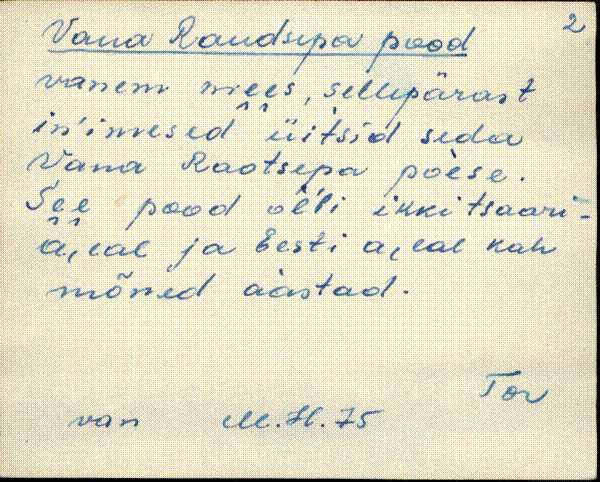 2
Vana Raudsepa pood
vanem mees, sellepärast
in'imesed üitsid seda
Vana Raotsepa pòèse.
See pood oĺli ikki tsaari-
a,eal ja Eesti a,eal kah
mõned aàstad.
Tor
van M.H. 75